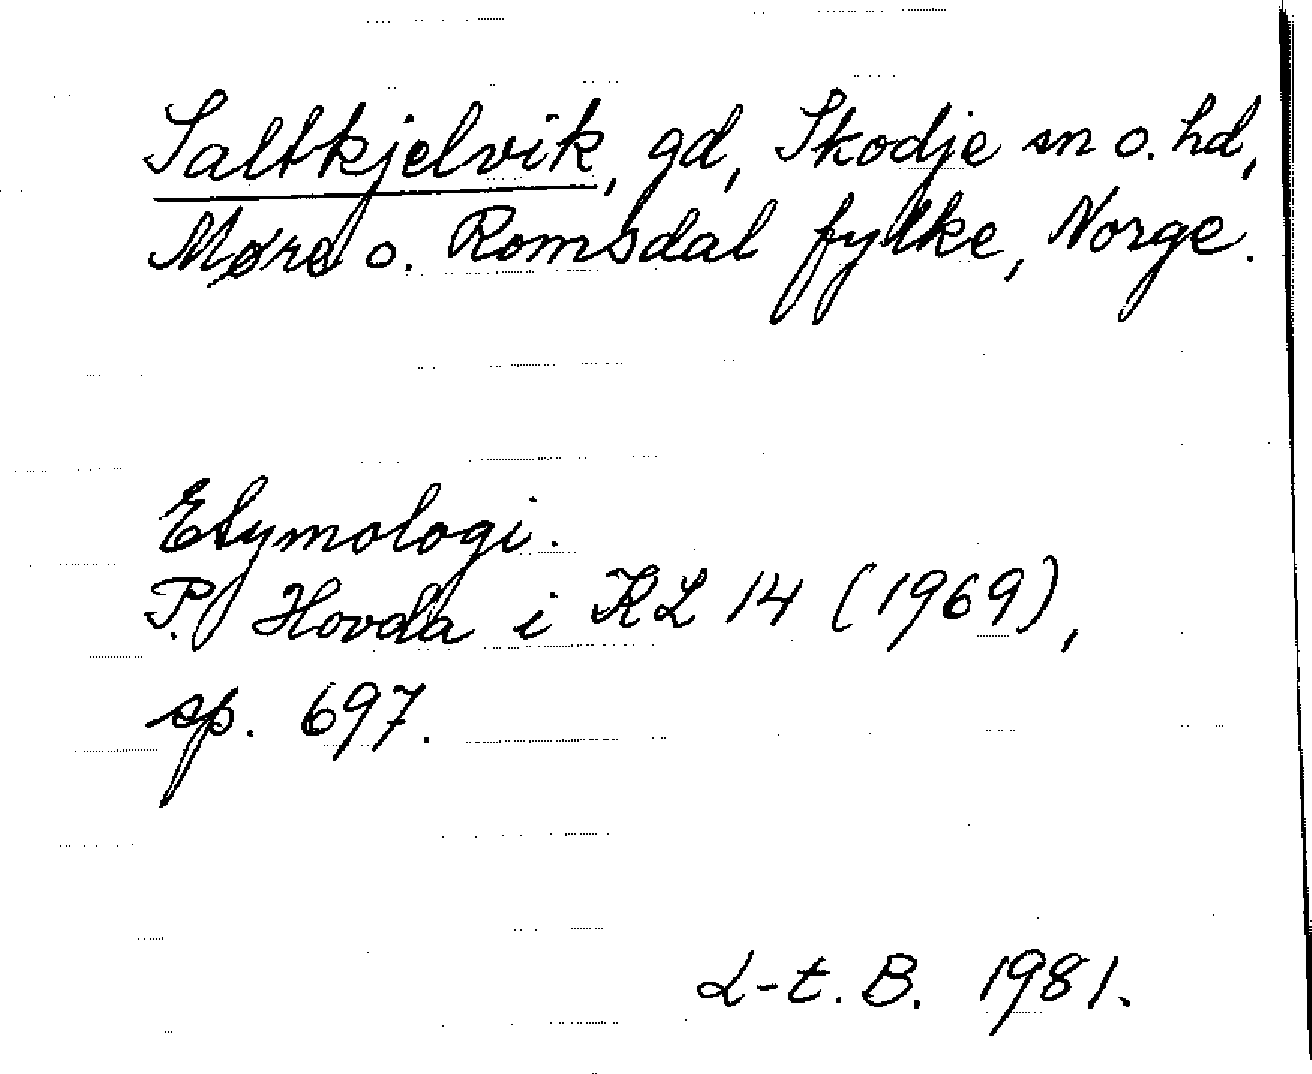 Saltkjelvik, gd, Skodje sn o. hd,
Møre o. Romsdal fylke, Norge.
Etymologi.
P. Hovda i KL 14 (1969),
sp. 697.
L-t. B. 1981.